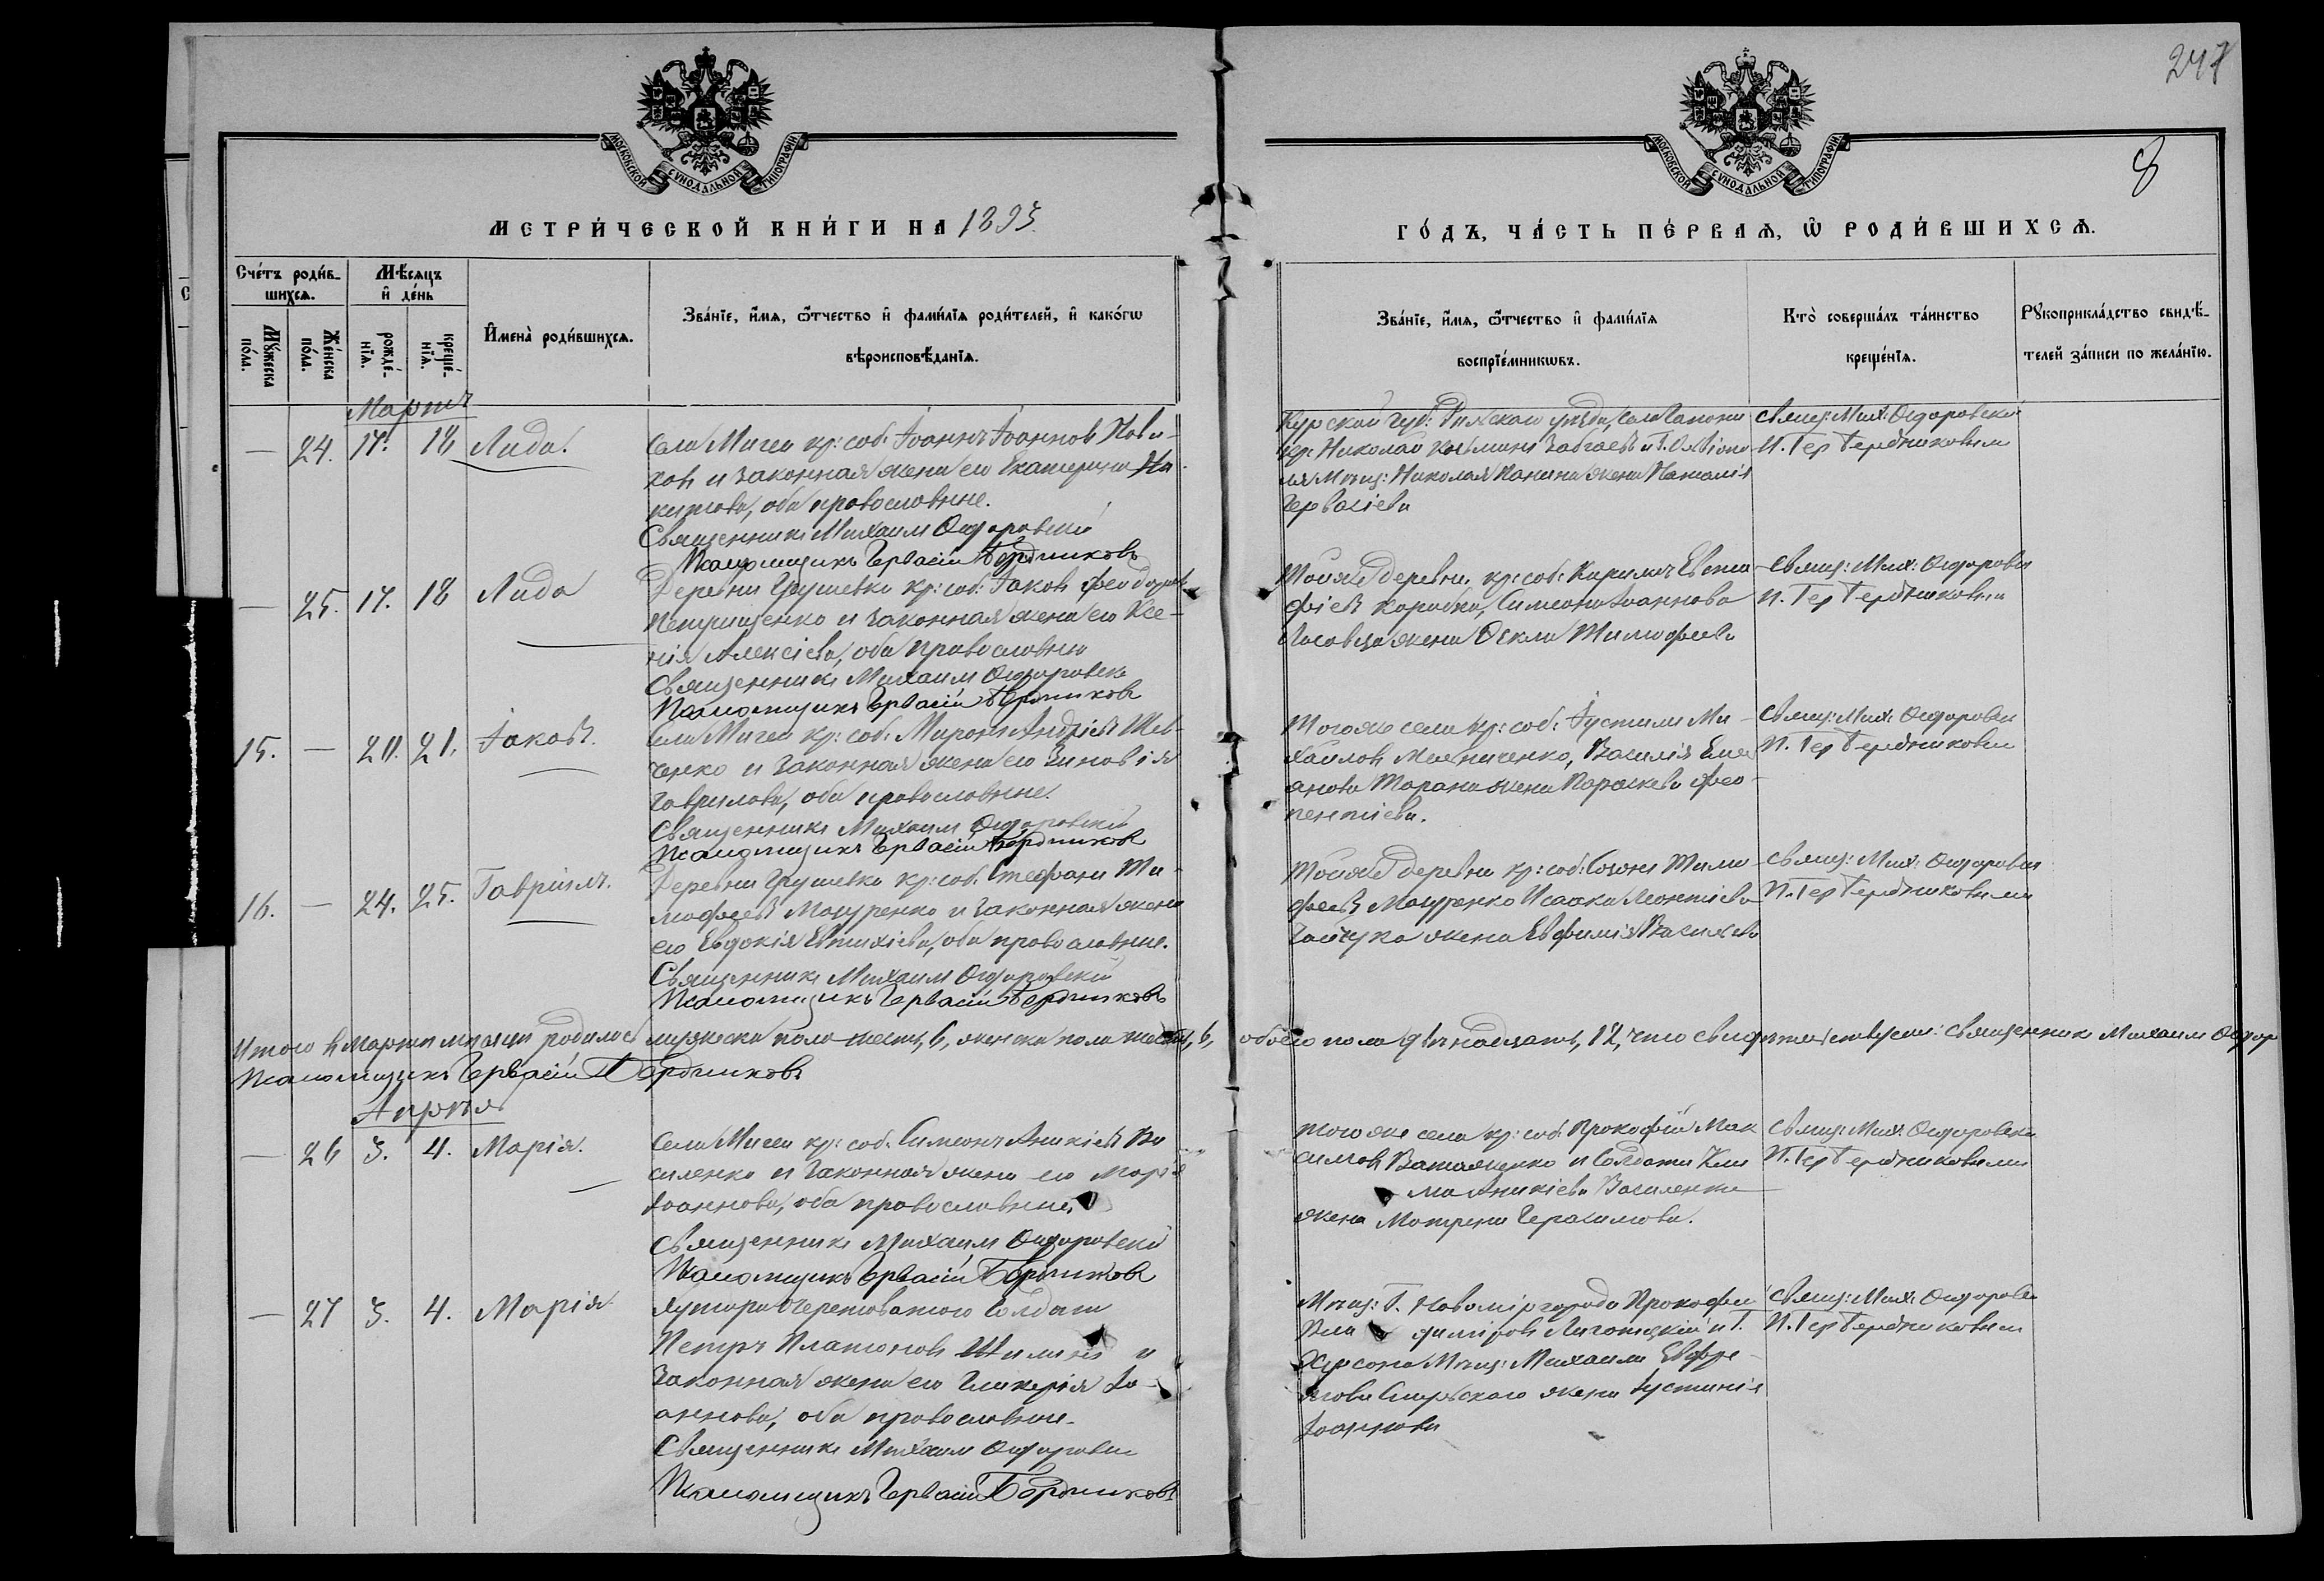 247
8
МОСКОВСКОЙ СѴНОДАЛЬНОЙ ТИПОГРАФІИ
МОСКОВСКОЙ СѴНОДАЛЬНОЙ ТИПОГРАФІИ
МЕТРИ́ЧЕСКОЙ КНИ́ГИ НА 1893.
ГО́ДЪ, ЧА́СТЬ ПЕ́РВАѦ, Ѡ҆ РОДИ́ВШИХСѦ.
Сче́тъ роди́в-
шихсѧ.
Мꙋ́жеска по́ла.
Же́нска по́ла.
Мѣ́сѧцъ
и҆ де́нь
рожде́-нїѧ.
креще́-нїѧ.
И҆мена̀ роди́вшихсѧ.
Зва́нїе, и҆́мѧ, ѻ҆́тчество и҆ фами́лїѧ роди́телей, и҆ како́гѡ
вѣроисповѣ́данїѧ.
Зва́нїе, и҆́мѧ, ѻ҆́тчество и҆ фами́лїѧ
воспрїе́мникѡвъ.
Кто̀ соверша́лъ та́инство
креще́нїѧ.
Рꙋкоприкла́дство свидѣ́-
телей за́писи по жела́нїю.
Мартъ
— 24. 17. 18 Лида.
Села Мигеи кр: соб. Іоаннъ Іоаннов Нови-
ков и законная жена его Екатерина Ни-
китова, оба православные.
Священникъ Михаилъ Ѳедоровскій
Псаломщикъ Гервасій Бердниковъ
Курской губ: уезда, села
кр: Николай Козьминъ и Г.
Мѣщ: Николая Панина жена Наталія
Гервасіева
Свящ: Мих: Ѳедоровскій
П. Гер Бердниковым
— 25. 17. 18 Лида
Деревни Грушевки кр: соб: Іаков Феодоров
Петрищенко и законная жена его Ксе-
нія Алексіева, оба православные
Священникъ Михаилъ Ѳедоровскій
Псаломщикъ Гервасій Бердниковъ
Той же деревни кр: соб: Кирилъ Евста
фіевъ Коробка, Симеона Іоаннова
жена Ѳекла Тимофеева
Свящ: Мих: Ѳедоровскій
П. Гер Бердниковым
15. — 20. 21. Іаковъ.
Села Мигеи кр: соб. Миронъ Андріевъ Шев-
ченко и законная жена его Зиновія
Гаврилова, оба православные.
Священникъ Михаилъ Ѳедоровскій
Псаломщикъ Гервасій Бердниковъ
Того же села кр: соб: Іустинъ Ми-
хайлов Мельниченко, Василія Емел
янова Тарана жена Параскева
Свящ: Мих: Ѳедоровскій
П. Гер Бердниковым
16. — 24. 25. Гавріилъ.
Деревни Грушевки кр: соб. Стефанъ Ти-
мофеевъ Мазуренко и законная жена
его Евдокія Евтихіева, оба православные.
Священникъ Михаилъ Ѳедоровскій
Псаломщикъ Гервасій Бердниковъ
Той же деревни кр: соб: Созонъ Тимо
феевъ Мазуренко Исаака Леонтіева
жена Евфимія Василіева
Свящ: Мих: Ѳедоровскій
П. Гер Бердниковым
Итого в Мартѣ мѣсяцѣ родилось мужеска пола шесть, 6, женска пола шесть, 6, обоего пола двѣнадцать, 12, что свидѣтельствуем: Священник Михаилъ Ѳедор
Псаломщикъ Гервасій Бердниковъ
Апрѣля
— 26 3. 4. Марія.
Села Мигеи кр: соб. Симеонъ Аникіевъ Ва
силенко и законная жена его Марія
Іоаннова, оба православные
Священникъ Михаилъ Ѳедоровскій
Псаломщикъ Гервасій Бердниковъ
того же села кр: соб. Прокофій Мак
симов и солдата Кли
ма Аникіева Василенка
жена Матрена Герасимова.
Свящ: Мих: Ѳедоровскій
П. Гер Бердниковым
— 27 3. 4. Марія
Хутора Черетоватого солдатъ
Петръ Платонов Шилинъ и
законная жена его Гликерія Іо-
аннова, оба православные.
Священникъ Михаилъ Ѳедоровскій
Псаломщикъ Гервасій Бердниковъ
Мѣщ: Г. Новомиргорода Прокофій
Вла диміров и Г.
Херсона Мѣщ: Михаила
жена Іустинія
Іоаннова
Свящ: Мих: Ѳедоровскій
П. Гер Бердниковым